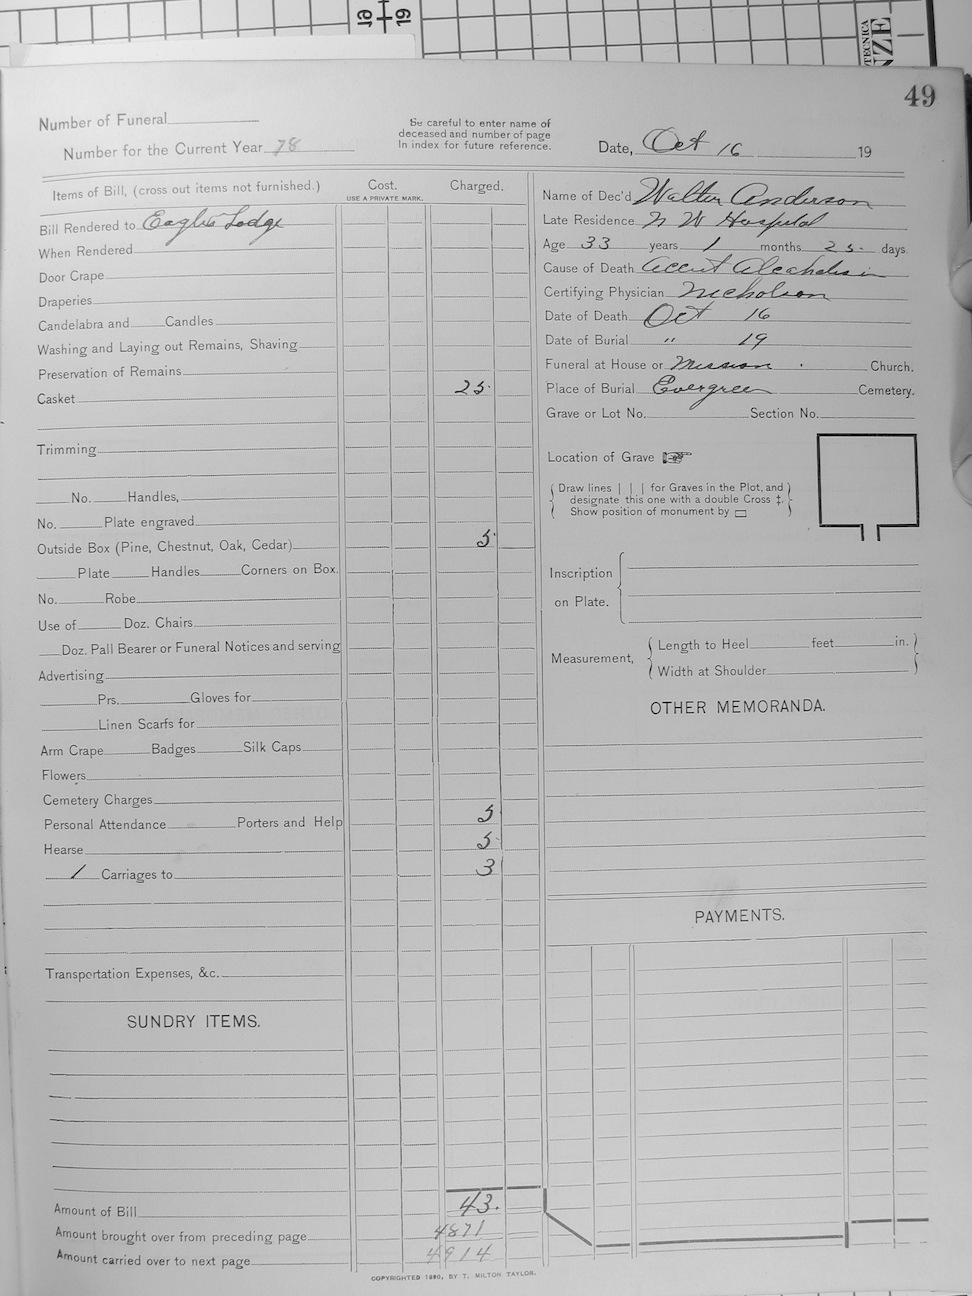 19
TECNICA
49
Number of Funeral
Number for the Current Year 78
Be careful to enter name of
deceased and number of page
In index for future reference.
Date, Oct 16 19
Items of Bill, (cross out items not furnished.)
Cost.
USE A PRIVATE MARK.
Charged.
Bill Rendered to Eagles Lodge
When Rendered
Door Crape
Draperies
Candelabra and Candles
Washing and Laying out Remains, Shaving
Preservation of Remains
Casket 25
Trimming
No. Handles,
No. Plate engraved
Outside Box (Pine, Chestnut, Oak, Cedar) 5
Plate Handles Corners on Box.
No. Robe
Use of Doz. Chairs
Doz. Pall Bearer or Funeral Notices and serving
Advertising
Prs. Gloves for
Linen Scarfs for
Arm Crape Badges Silk Caps
Flowers
Cemetery Charges
Personal Attendance Porters and Help 5
Hearse 5
1 Carriages to 3
Transportation Expenses, &c.
SUNDRY ITEMS.
Amount of Bill 43.
Amount brought over from preceding page 4871
Amount carried over to next page 4914
Name of Dec'd Walter Anderson
Late Residence N W Hospital
Age 33 years 1 months 25 days
Cause of Death Accut Alcaholism
Certifying Physician Nicholson
Date of Death Oct 16
Date of Burial " 19
Funeral at House or Mission Church.
Place of Burial Evergreen Cemetery.
Grave or Lot No. Section No.
Location of Grave
Draw lines | | | for Graves in the Plot, and
designate this one with a double Cross ‡.
Show position of monument by
Inscription
on Plate.
Measurement,
Length to Heel feet in.
Width at Shoulder
OTHER MEMORANDA.
PAYMENTS.
COPYRIGHTED 1890, BY T. MILTON TAYLOR.